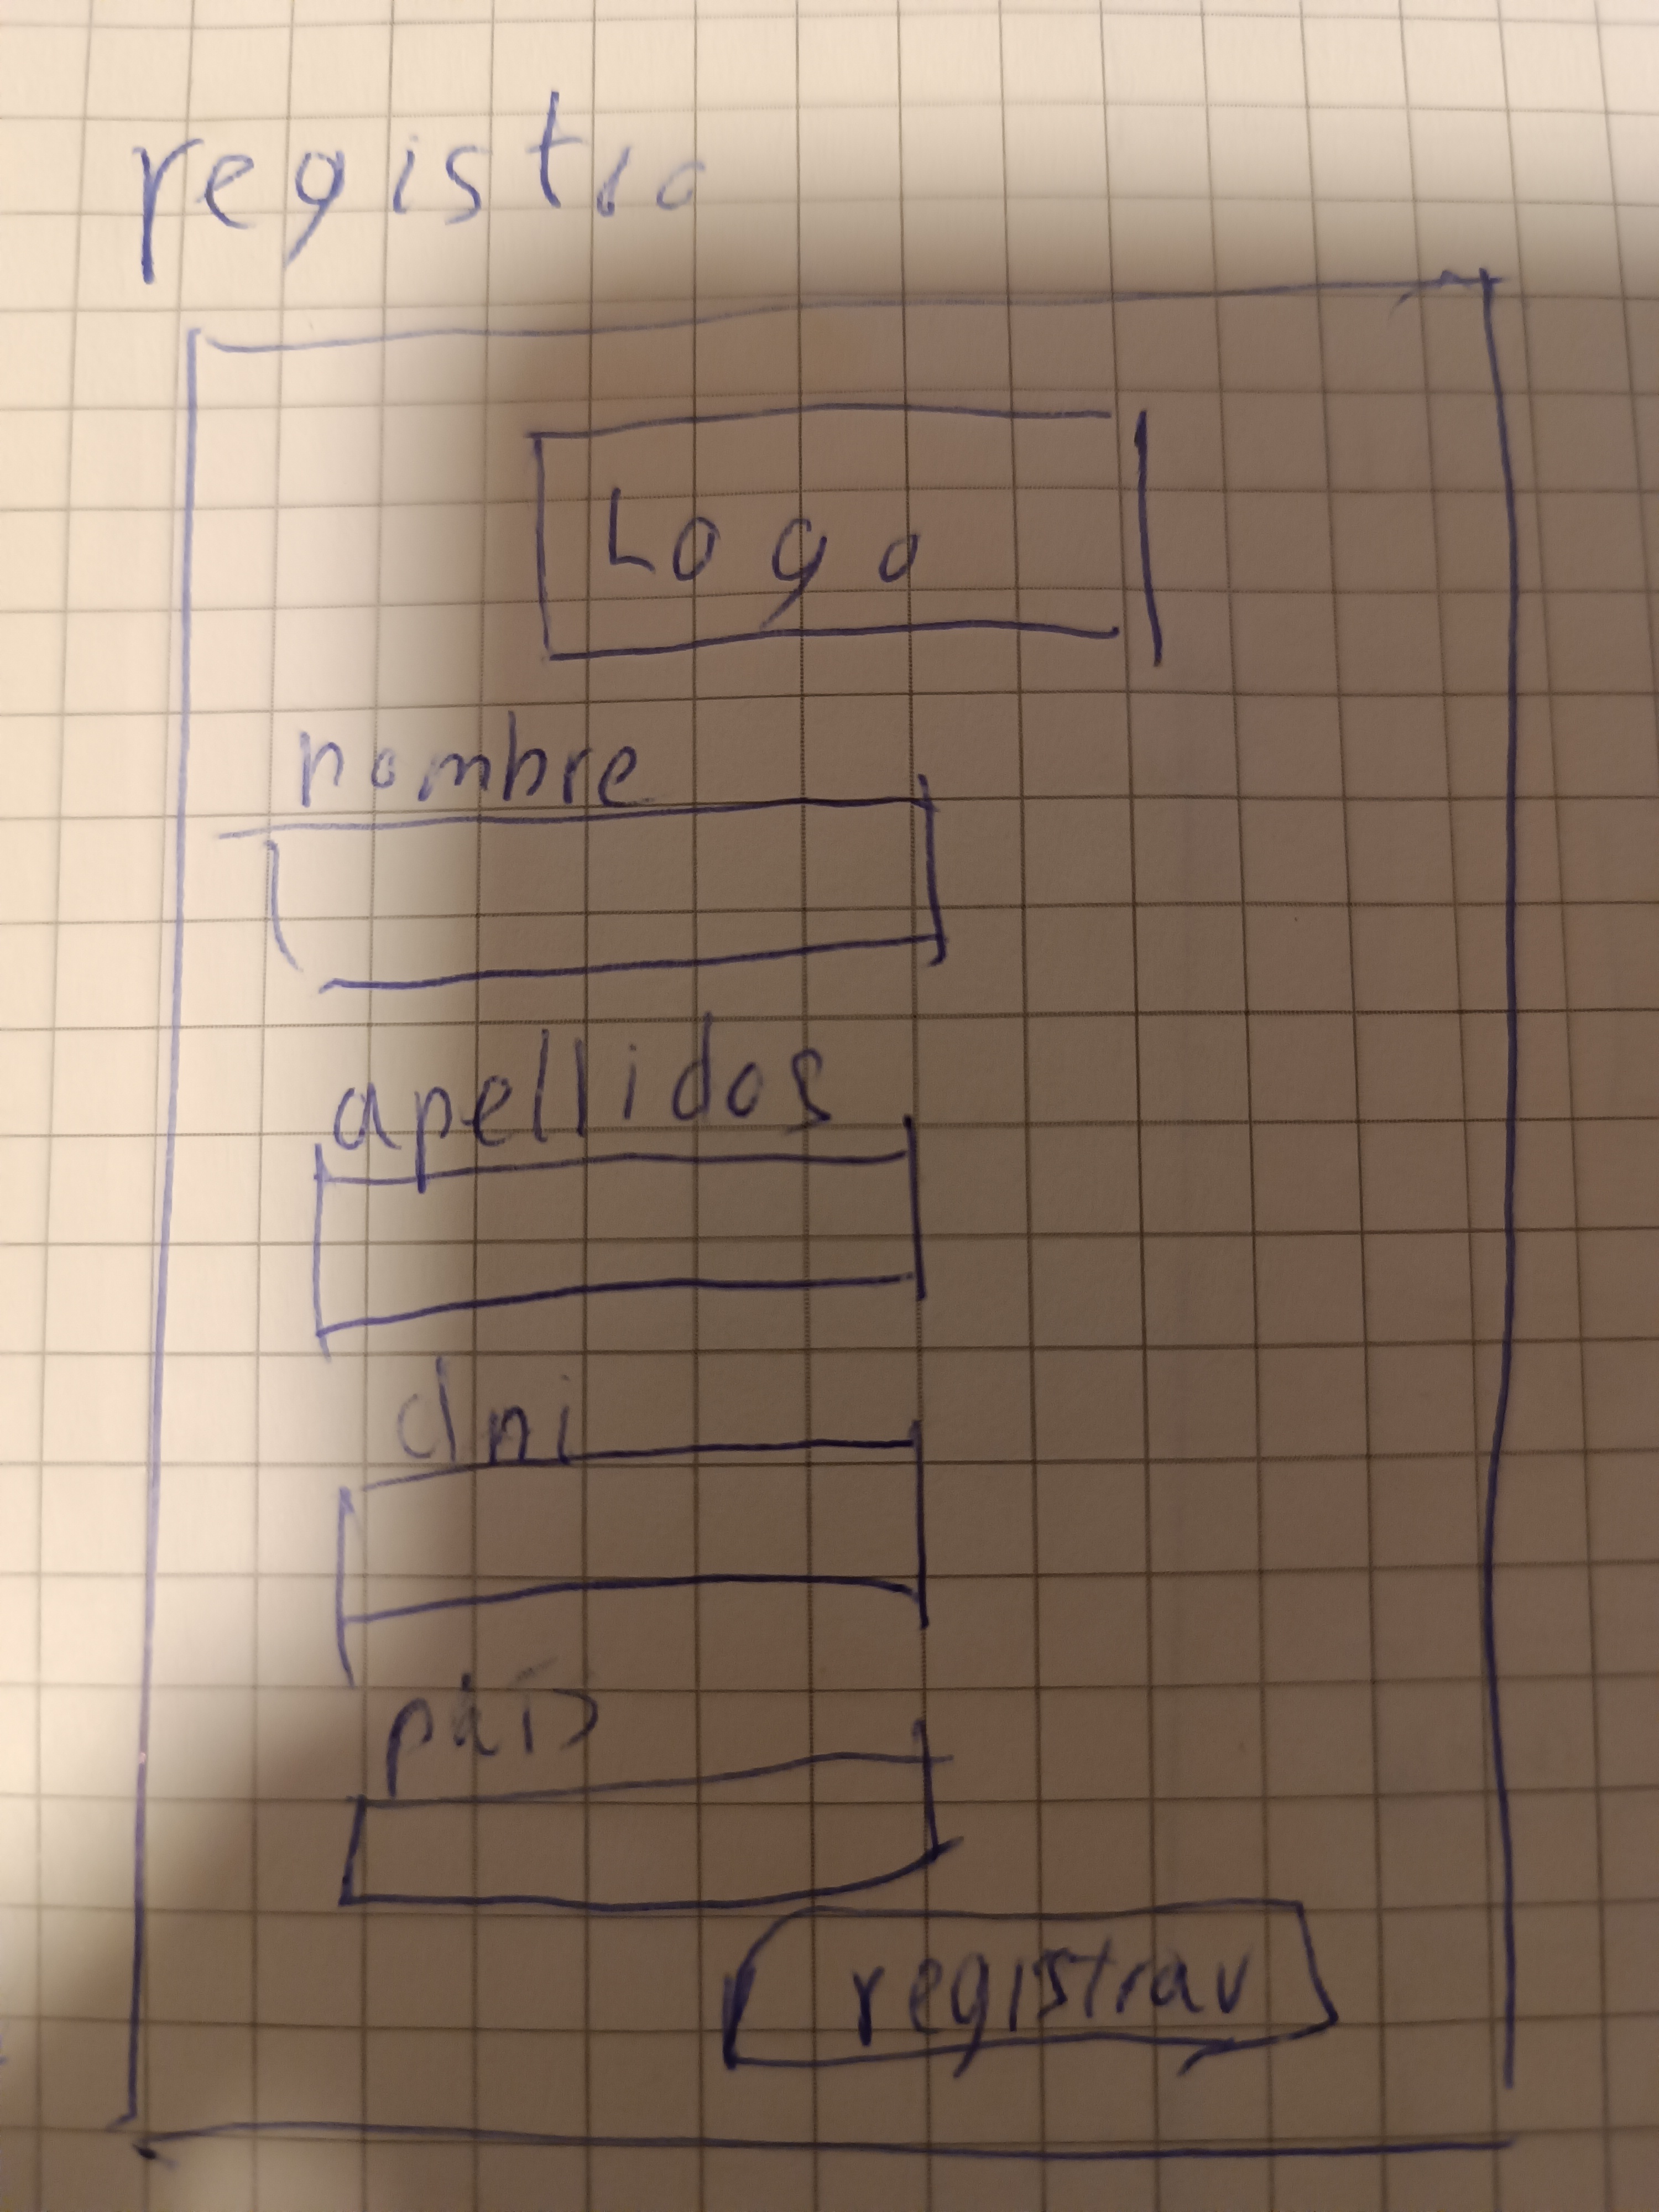 registro
Logo
nombre
apellidos
dni
país
registrar